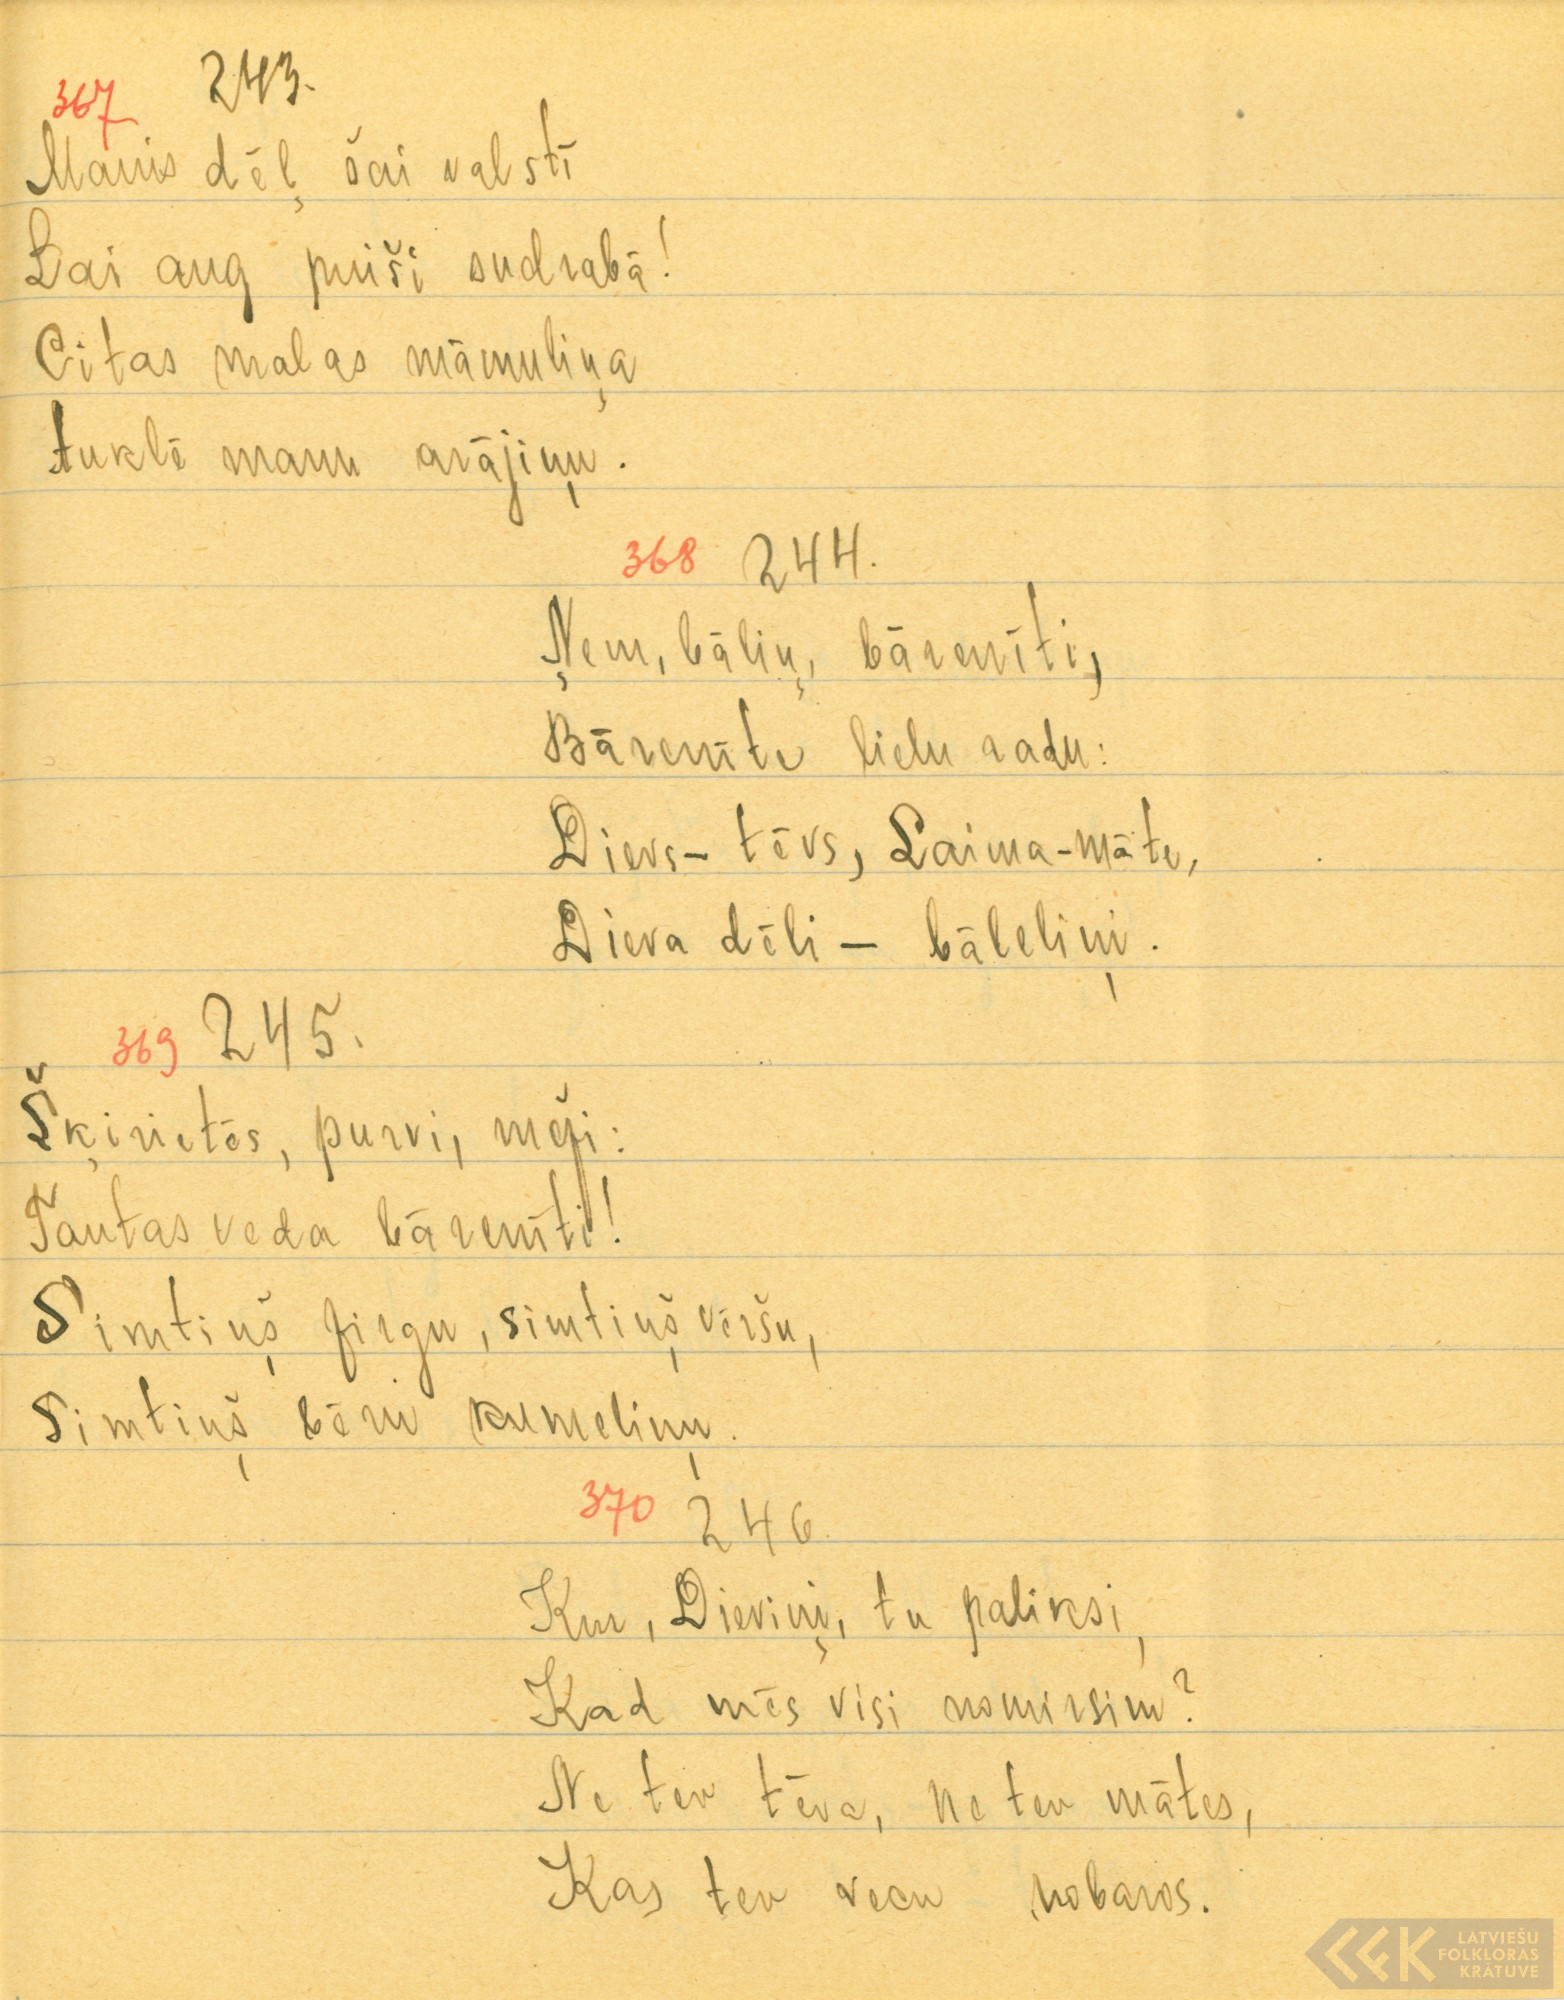 367 243.
Manis dēļ šai valstī
Lai aug puiši sudrabā!
Citas malas māmuliņa
tuklē manu arājiņu.
368 244.
Ņem, bāliņ, bārenīti,
Bārenīte lielu radu:
Dievs- tēvs, Laima-māte,
Dieva dēli - bāleliņi.
369 245.
Šķirietēs, purvi, meži:
Tautas veda bārenīti!
Simtiņš zirgu, simtiņš vēršu,
Simtiņš bēru kumeliņu.
370 246.
Kur, Dieviņ, tu paliksi,
Kad mēs visi nomirsim?
Ne tev tēva, ne tev mātes,
Kas tev vecu nobaros.
LATVIEŠU
FOLKLORAS
KRĀTUVE